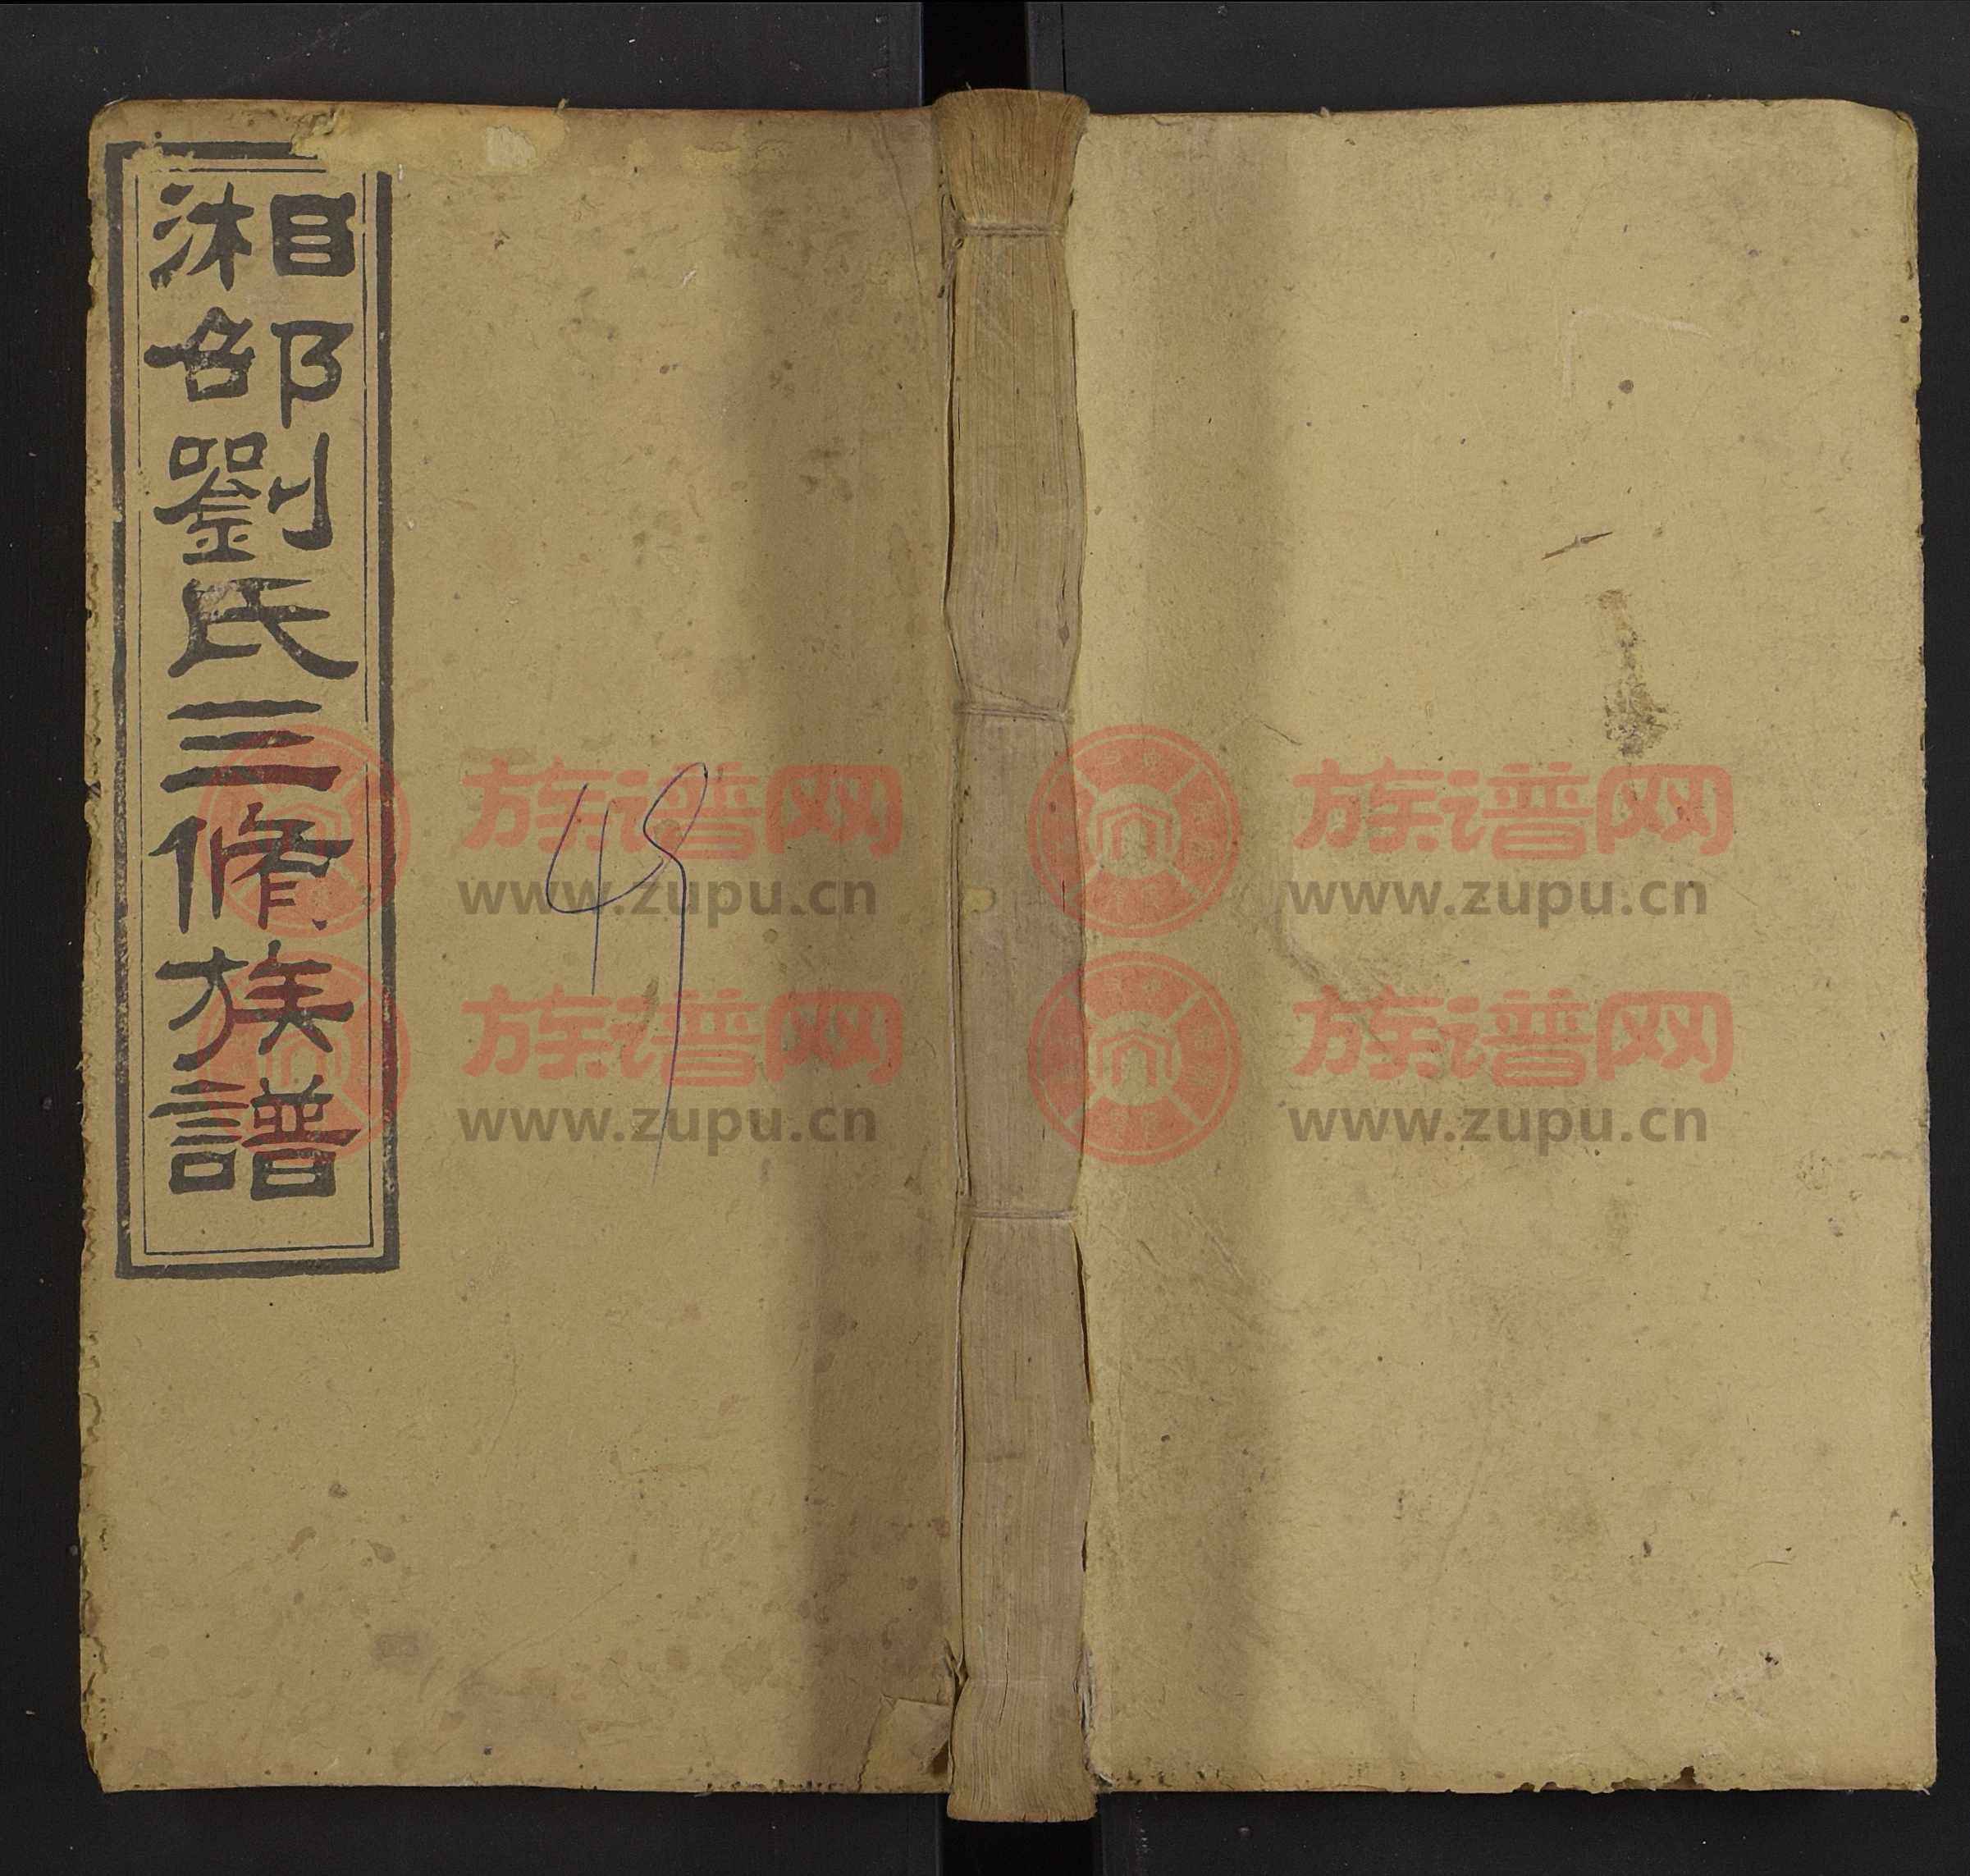 湘邵劉氏三修族譜
49
族谱网
www.zupu.cn
族谱网
www.zupu.cn
族谱网
www.zupu.cn
族谱网
www.zupu.cn